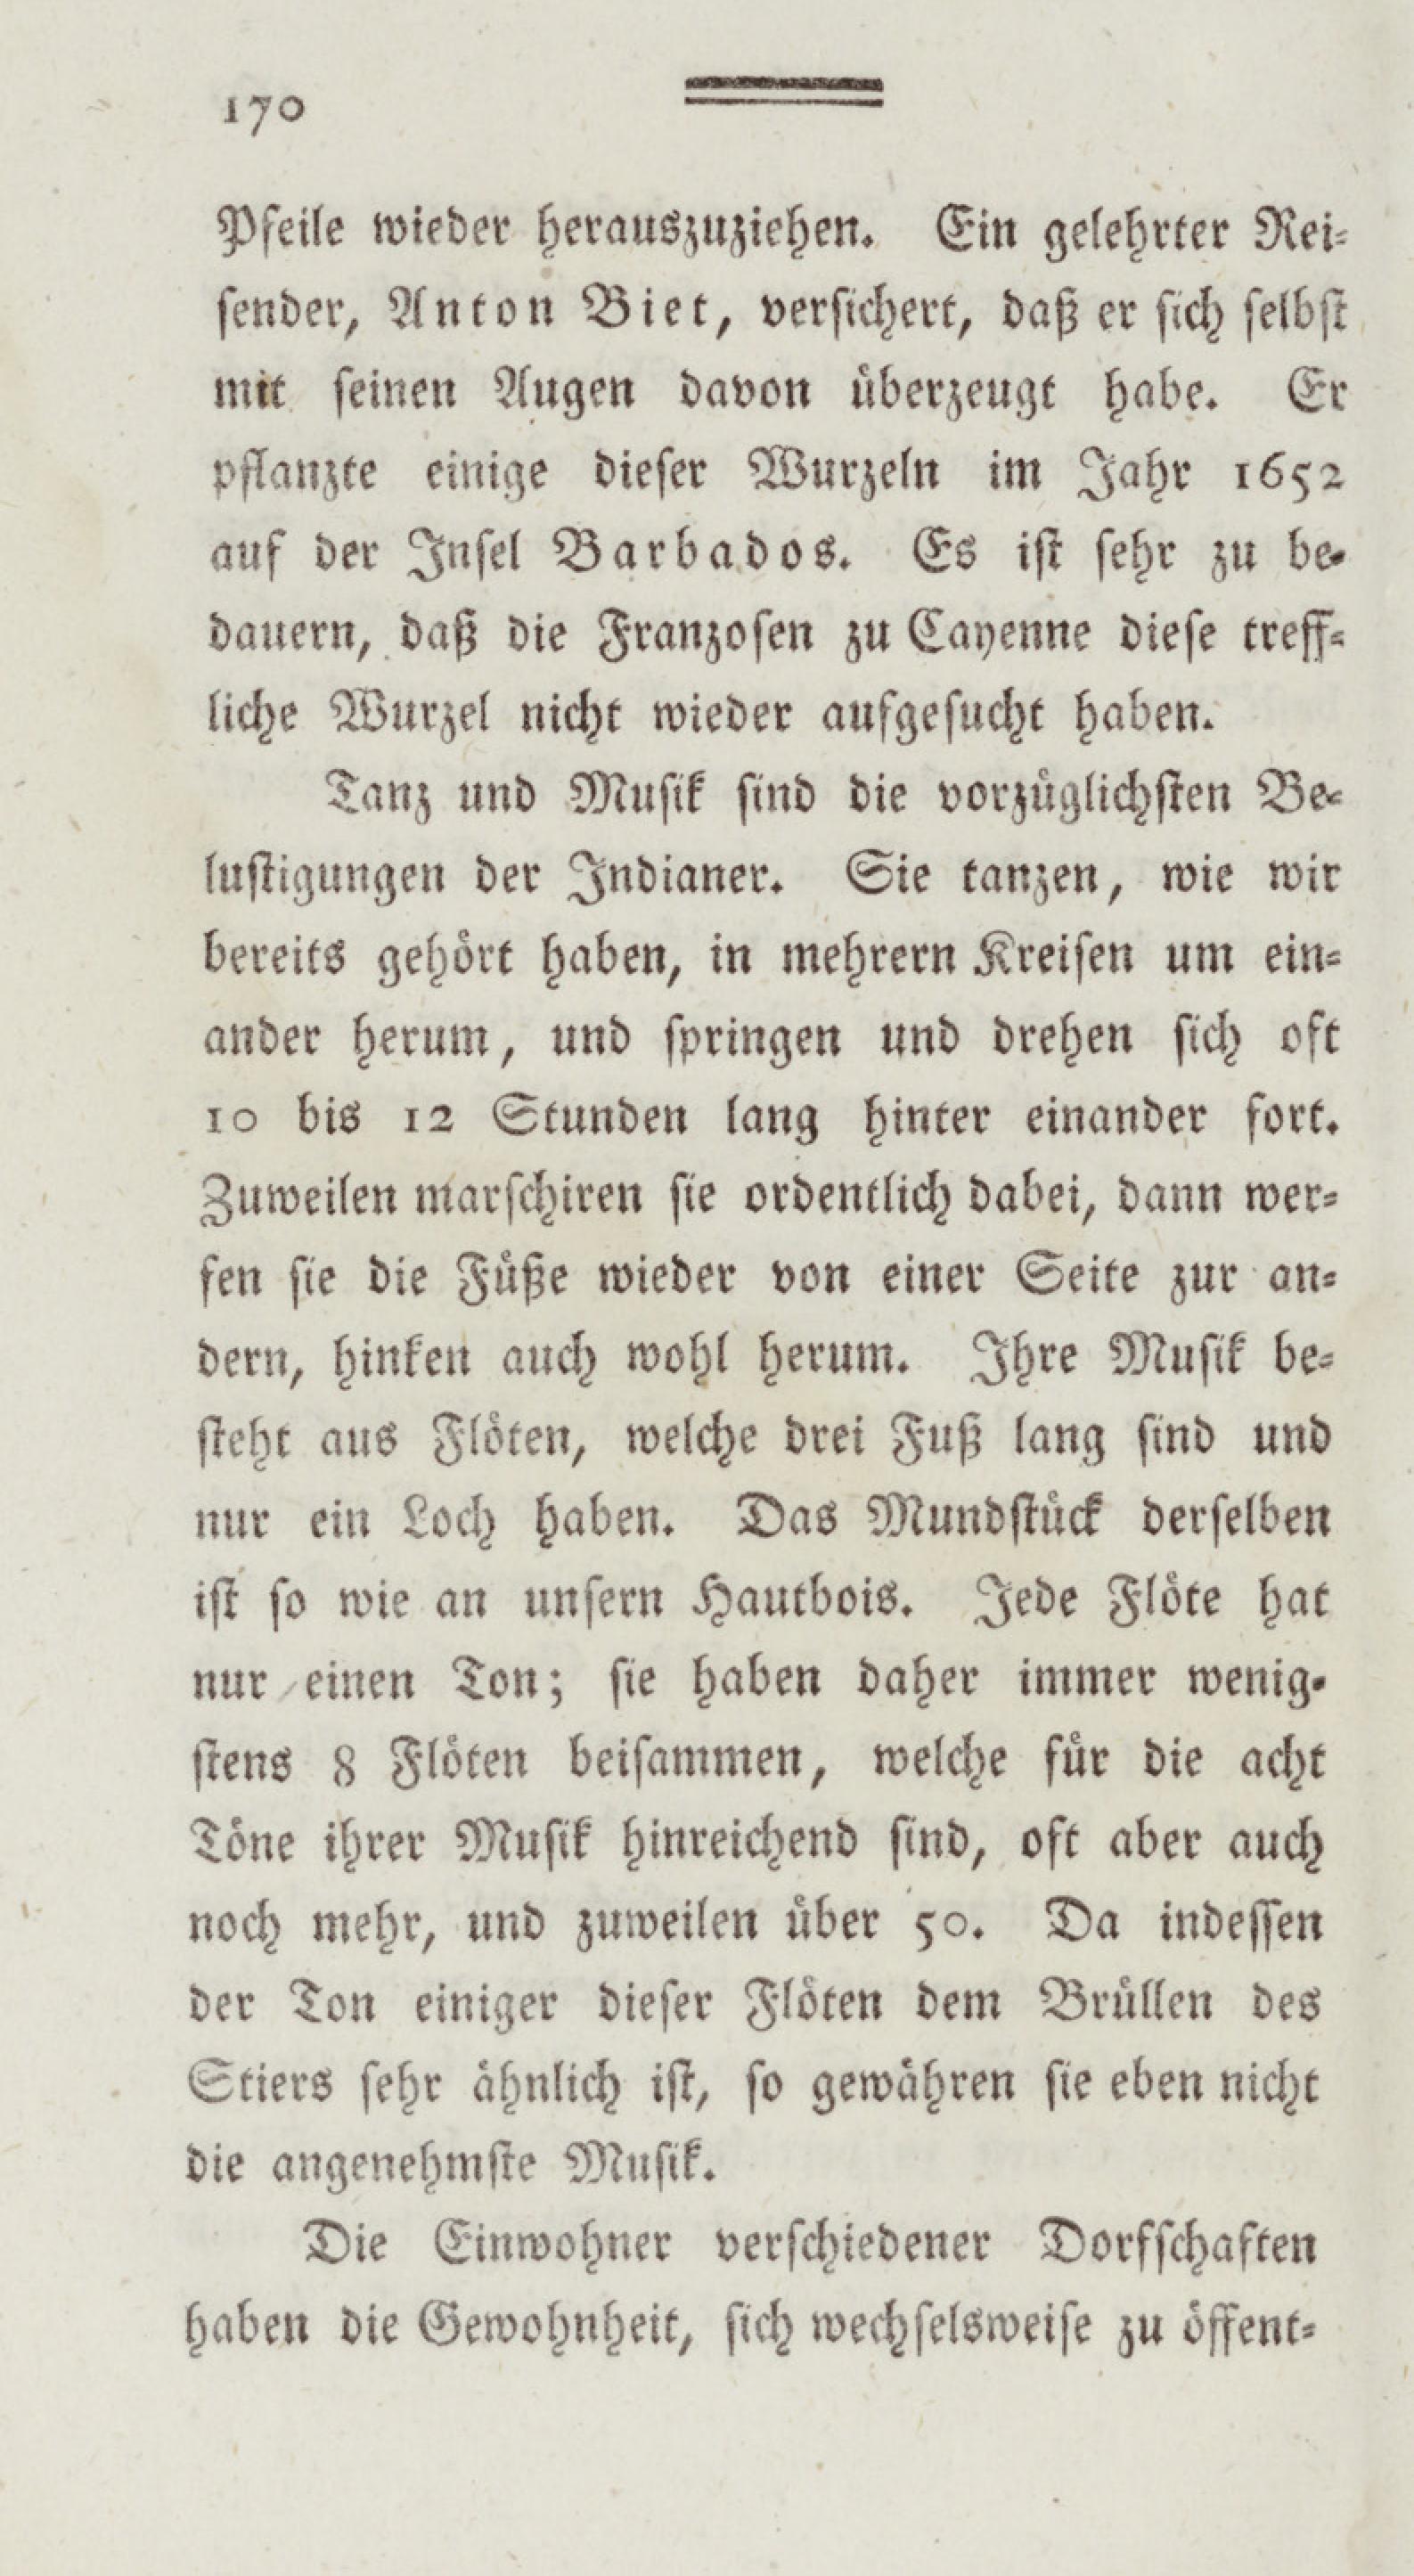 170
Pfeile wieder herauszuziehen. Ein gelehrter Rei-
sender, Anton Biet, versichert, daß er sich selbst
mit seinen Augen davon überzeugt habe. Er
pflanzte einige dieser Wurzeln im Jahr 1652
auf der Insel Barbados. Es ist sehr zu be-
dauern, daß die Franzosen zu Cayenne diese treff-
liche Wurzel nicht wieder aufgesucht haben.
Tanz und Musik sind die vorzüglichsten Be-
lustigungen der Indianer. Sie tanzen, wie wir
bereits gehört haben, in mehrern Kreisen um ein-
ander herum, und springen und drehen sich oft
10 bis 12 Stunden lang hinter einander fort.
Zuweilen marschiren sie ordentlich dabei, dann wer-
fen sie die Füße wieder von einer Seite zur an-
dern, hinken auch wohl herum. Ihre Musik be-
steht aus Flöten, welche drei Fuß lang sind und
nur ein Loch haben. Das Mundstück derselben
ist so wie an unsern Hautbois. Jede Flöte hat
nur einen Ton; sie haben daher immer wenig-
stens 8 Flöten beisammen, welche für die acht
Töne ihrer Musik hinreichend sind, oft aber auch
noch mehr, und zuweilen über 50. Da indessen
der Ton einiger dieser Flöten dem Brüllen des
Stiers sehr ähnlich ist, so gewähren sie eben nicht
die angenehmste Musik.
Die Einwohner verschiedener Dorfschaften
haben die Gewohnheit, sich wechselsweise zu öffent-